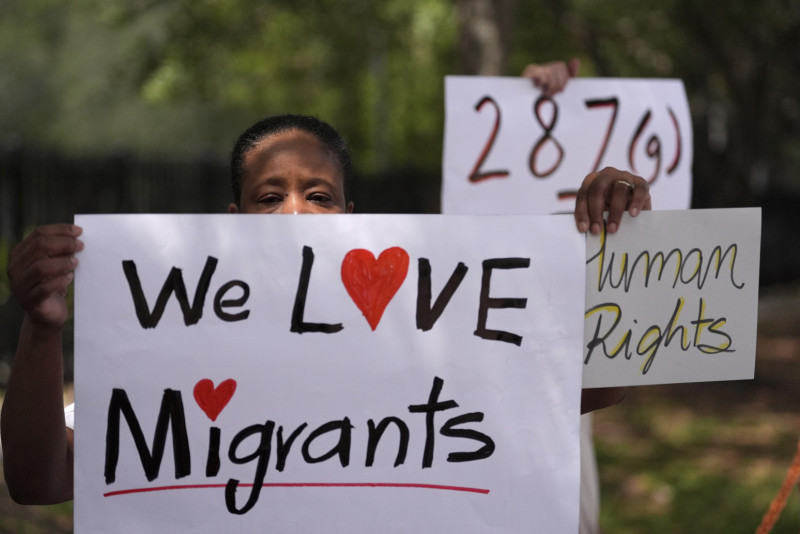 We LOVE
Migrants
287(g)
Human
Rights